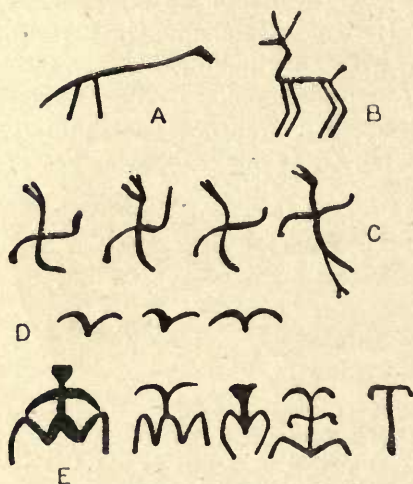 A B
C
D
E